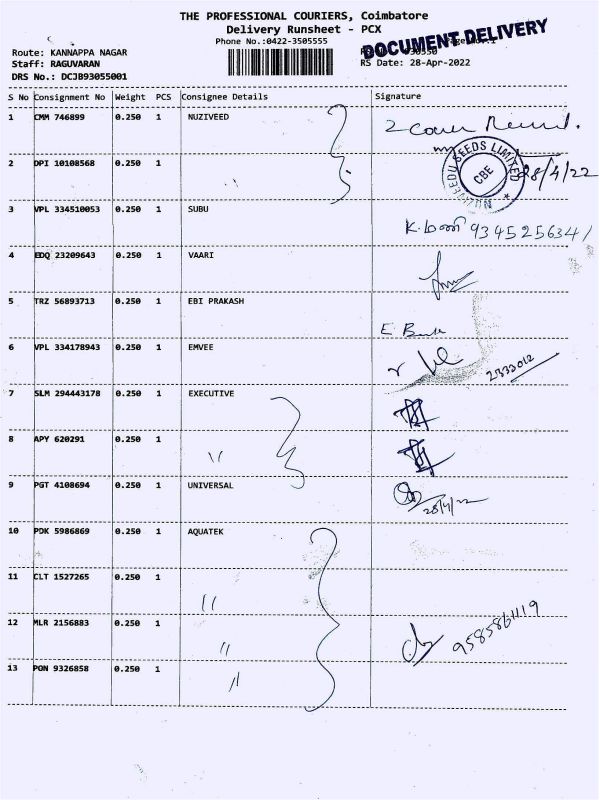 THE PROFESSIONAL COURIERS, Coimbatore
Delivery Runsheet - PCX
Phone No.:0422-3505555
DOCUMENT DELIVERY
Route: KANNAPPA NAGAR
Staff: RAGUVARAN
RS Date: 28-Apr-2022
DRS No.: DCJB93055001
S No Consignment No Weight PCS Consignee Details Signature
1 CMM 746899 0.250 1 NUZIVEED
2 DPI 10108568 0.250 1 〃
NUZIVEEDU SEEDS LIMITED
CBE
28/4/22
3 VPL 334510053 0.250 1 SUBU K. மணி 9345256341
4 EDQ 23209643 0.250 1 VAARI
5 TRZ 56893713 0.250 1 EBI PRAKASH
6 VPL 334178943 0.250 1 EMVEE 2333012
7 SLM 294443178 0.250 1 EXECUTIVE
8 APY 620291 0.250 1 〃
9 PGT 4108694 0.250 1 UNIVERSAL 28/4/22
10 PDK 5986869 0.250 1 AQUATEK
11 CLT 1527265 0.250 1 〃
12 MLR 2156883 0.250 1 〃 9585861119
13 PON 9326858 0.250 1 〃